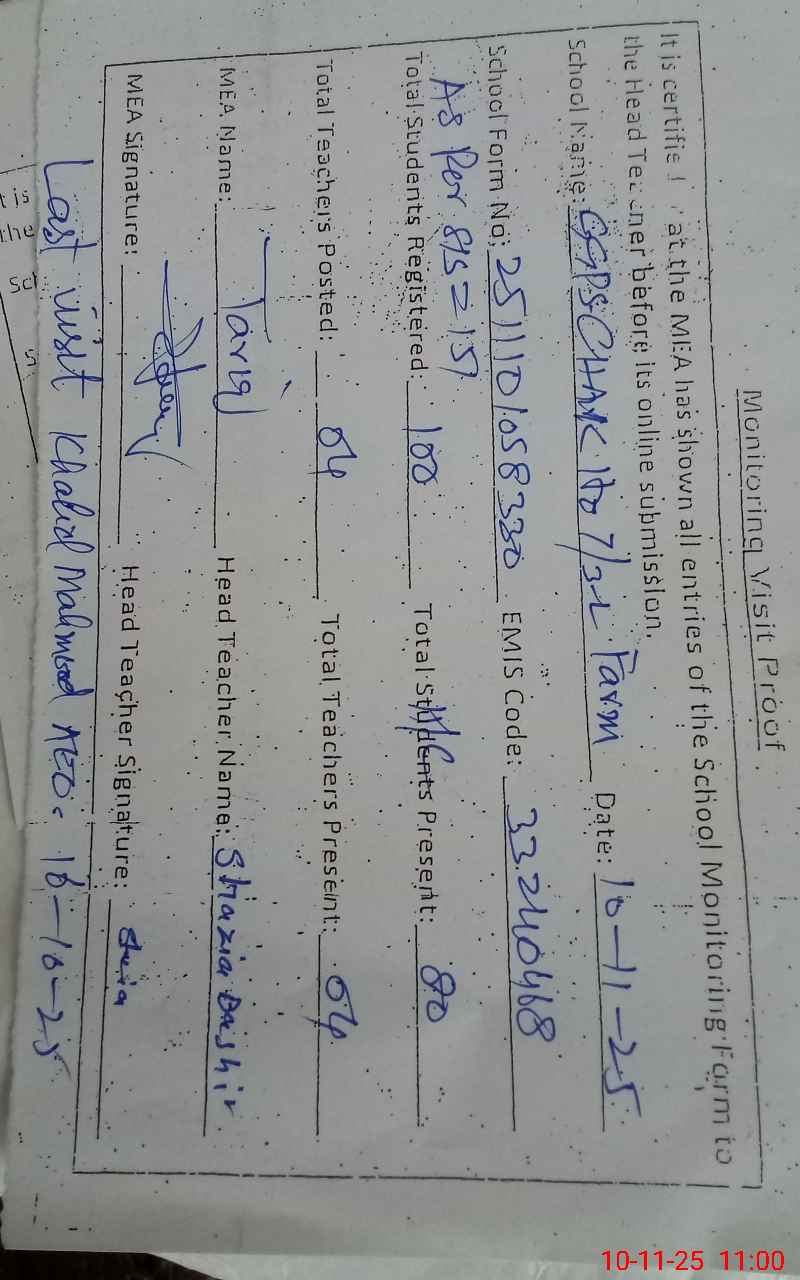 Monitoring Visit Proof
It is certified that the MEA has shown all entries of the School Monitoring Form to
the Head Teacher before its online submission.
School Name: GGPS CHAK No 7/32 Farm Date: 10-11-25
School Form No: 2511101058330 EMIS Code: 33240468
As Per SIS = 151
Total Students Registered: 100 Total Students Present: 80
Total Teachers Posted: 04 Total Teachers Present: 04
MEA Name: Tariq Head Teacher Name: Shazia Bashir
MEA Signature: Head Teacher Signature:
Last visit Khalid Mahmood AEO. 16-10-25
tis
the
10-11-25 11:00